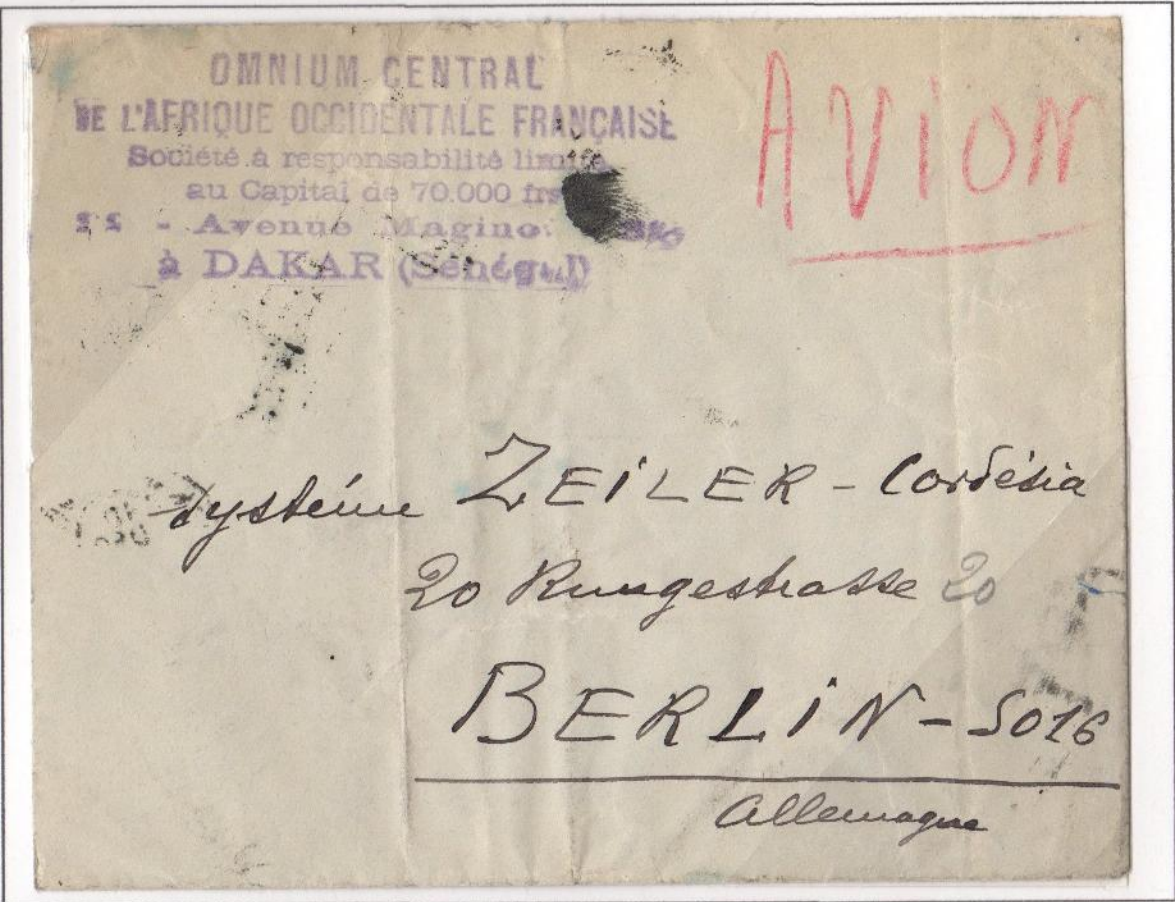 OMNIUM CENTRAL
DE L'AFRIQUE OCCIDENTALE FRANÇAISE
Société à responsabilité limitée
au Capital de 70.000 frs
- Avenue Maginot
à DAKAR (Sénégal)
AVION
Système ZEILER - Cordésia
20 Rungestrasse 20
BERLIN - SO16
Allemagne